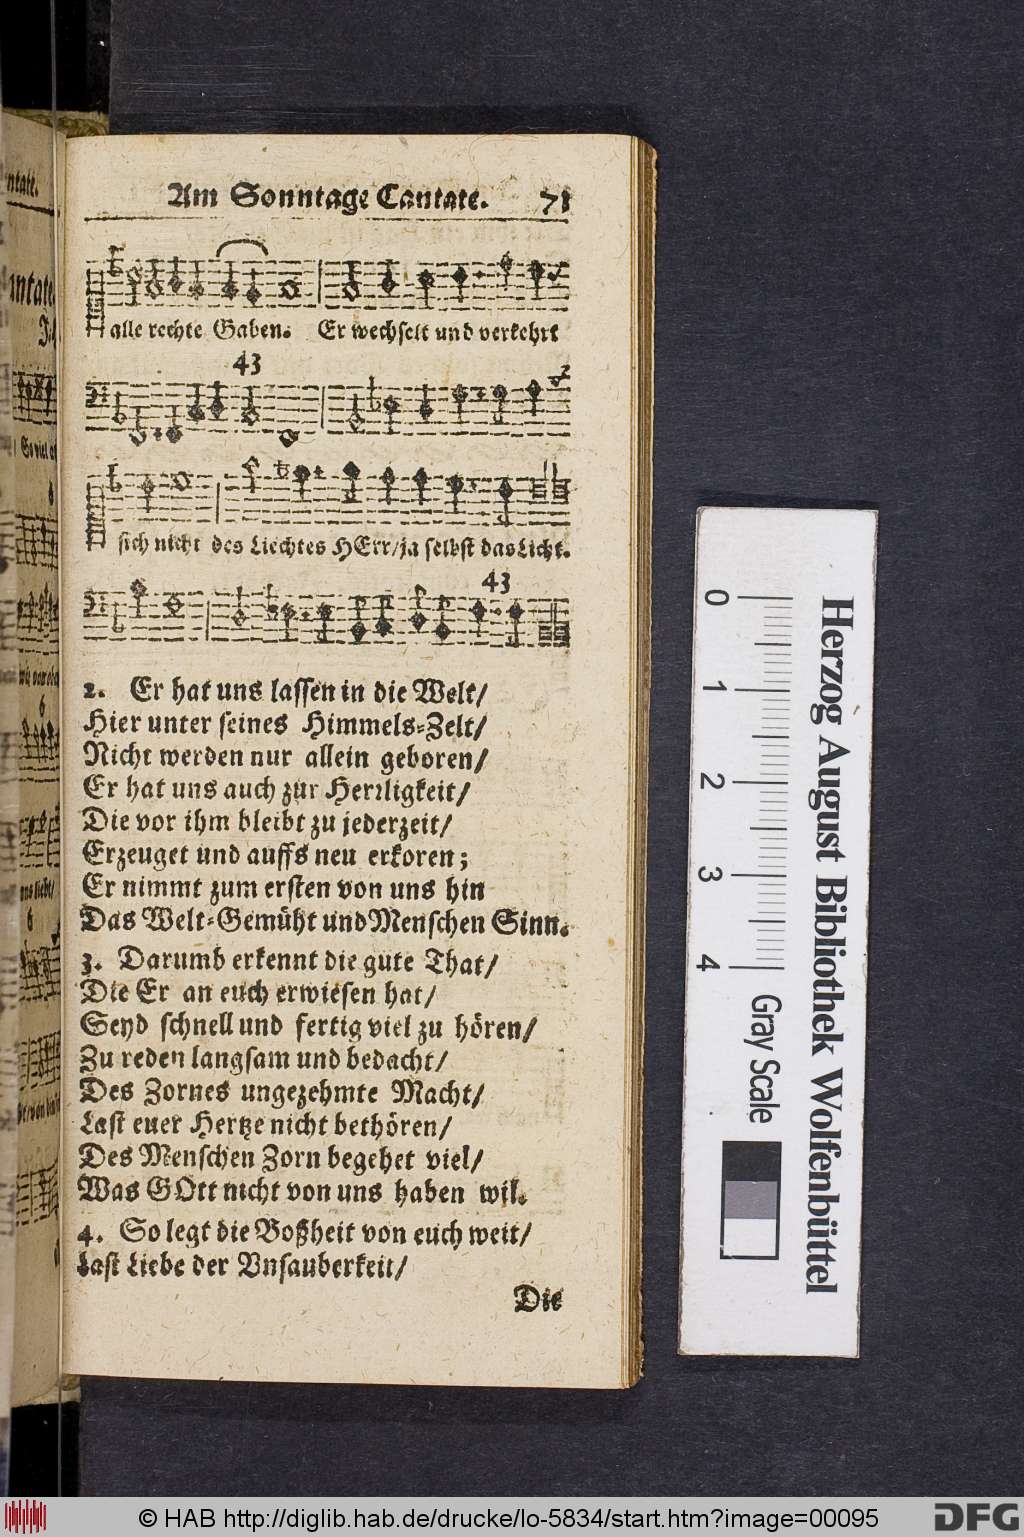 Am Sonntage Cantate. 71
alle rechte Gaben. Er wechselt und verkehrt
43
sich nicht des Liechtes HErr/ja selbst das Licht.
43
2. Er hat uns lassen in die Welt/
Hier unter seines Himmels-Zelt/
Nicht werden nur allein geboren/
Er hat uns auch zur Herrligkeit/
Die vor ihm bleibt zu jederzeit/
Erzeuget und auffs neu erkoren;
Er nimmt zum ersten von uns hin
Das Welt-Gemüht und Menschen Sinn.
3. Darumb erkennt die gute That/
Die Er an euch erwiesen hat/
Seyd schnell und fertig viel zu hören/
Zu reden langsam und bedacht/
Des Zornes ungezehmte Macht/
Last euer Hertze nicht bethören/
Des Menschen Zorn begehet viel/
Was GOtt nicht von uns haben wil.
4. So legt die Boßheit von euch weit/
Last Liebe der Vnsauberkeit/
Die
0 1 2 3 4
Gray Scale
Herzog August Bibliothek Wolfenbüttel
© HAB http://diglib.hab.de/drucke/lo-5834/start.htm?image=00095
DFG